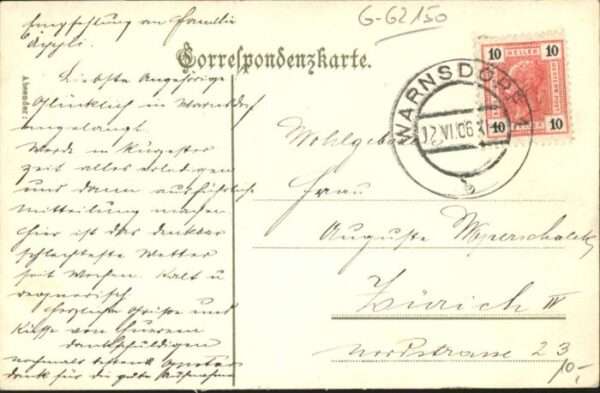 Empfehlung an Familie
Äppli.
G-62150
Correspondenzkarte.
Absender:
Liebste Angehörige
Glücklich in Warnsdorf
angelangt.
Werde in kürzester
Zeit alles erledigen
und dann ausführliche
Mitteilung machen
hier ist das denkbar
schlechteste Wetter
seit Wochen. Kalt u
regnerisch
Herzliche Grüsse und
Küsse von Euerem
dankschuldigen
nochmals
dank für die gute Aufnahme
10 HELLER 10
10 HELLER 10
WARNSDORF 1
12 VI 06 X
b
Wohlgeboren
Frau
Auguste
Zürich IV
Nordstrasse 23
10,-